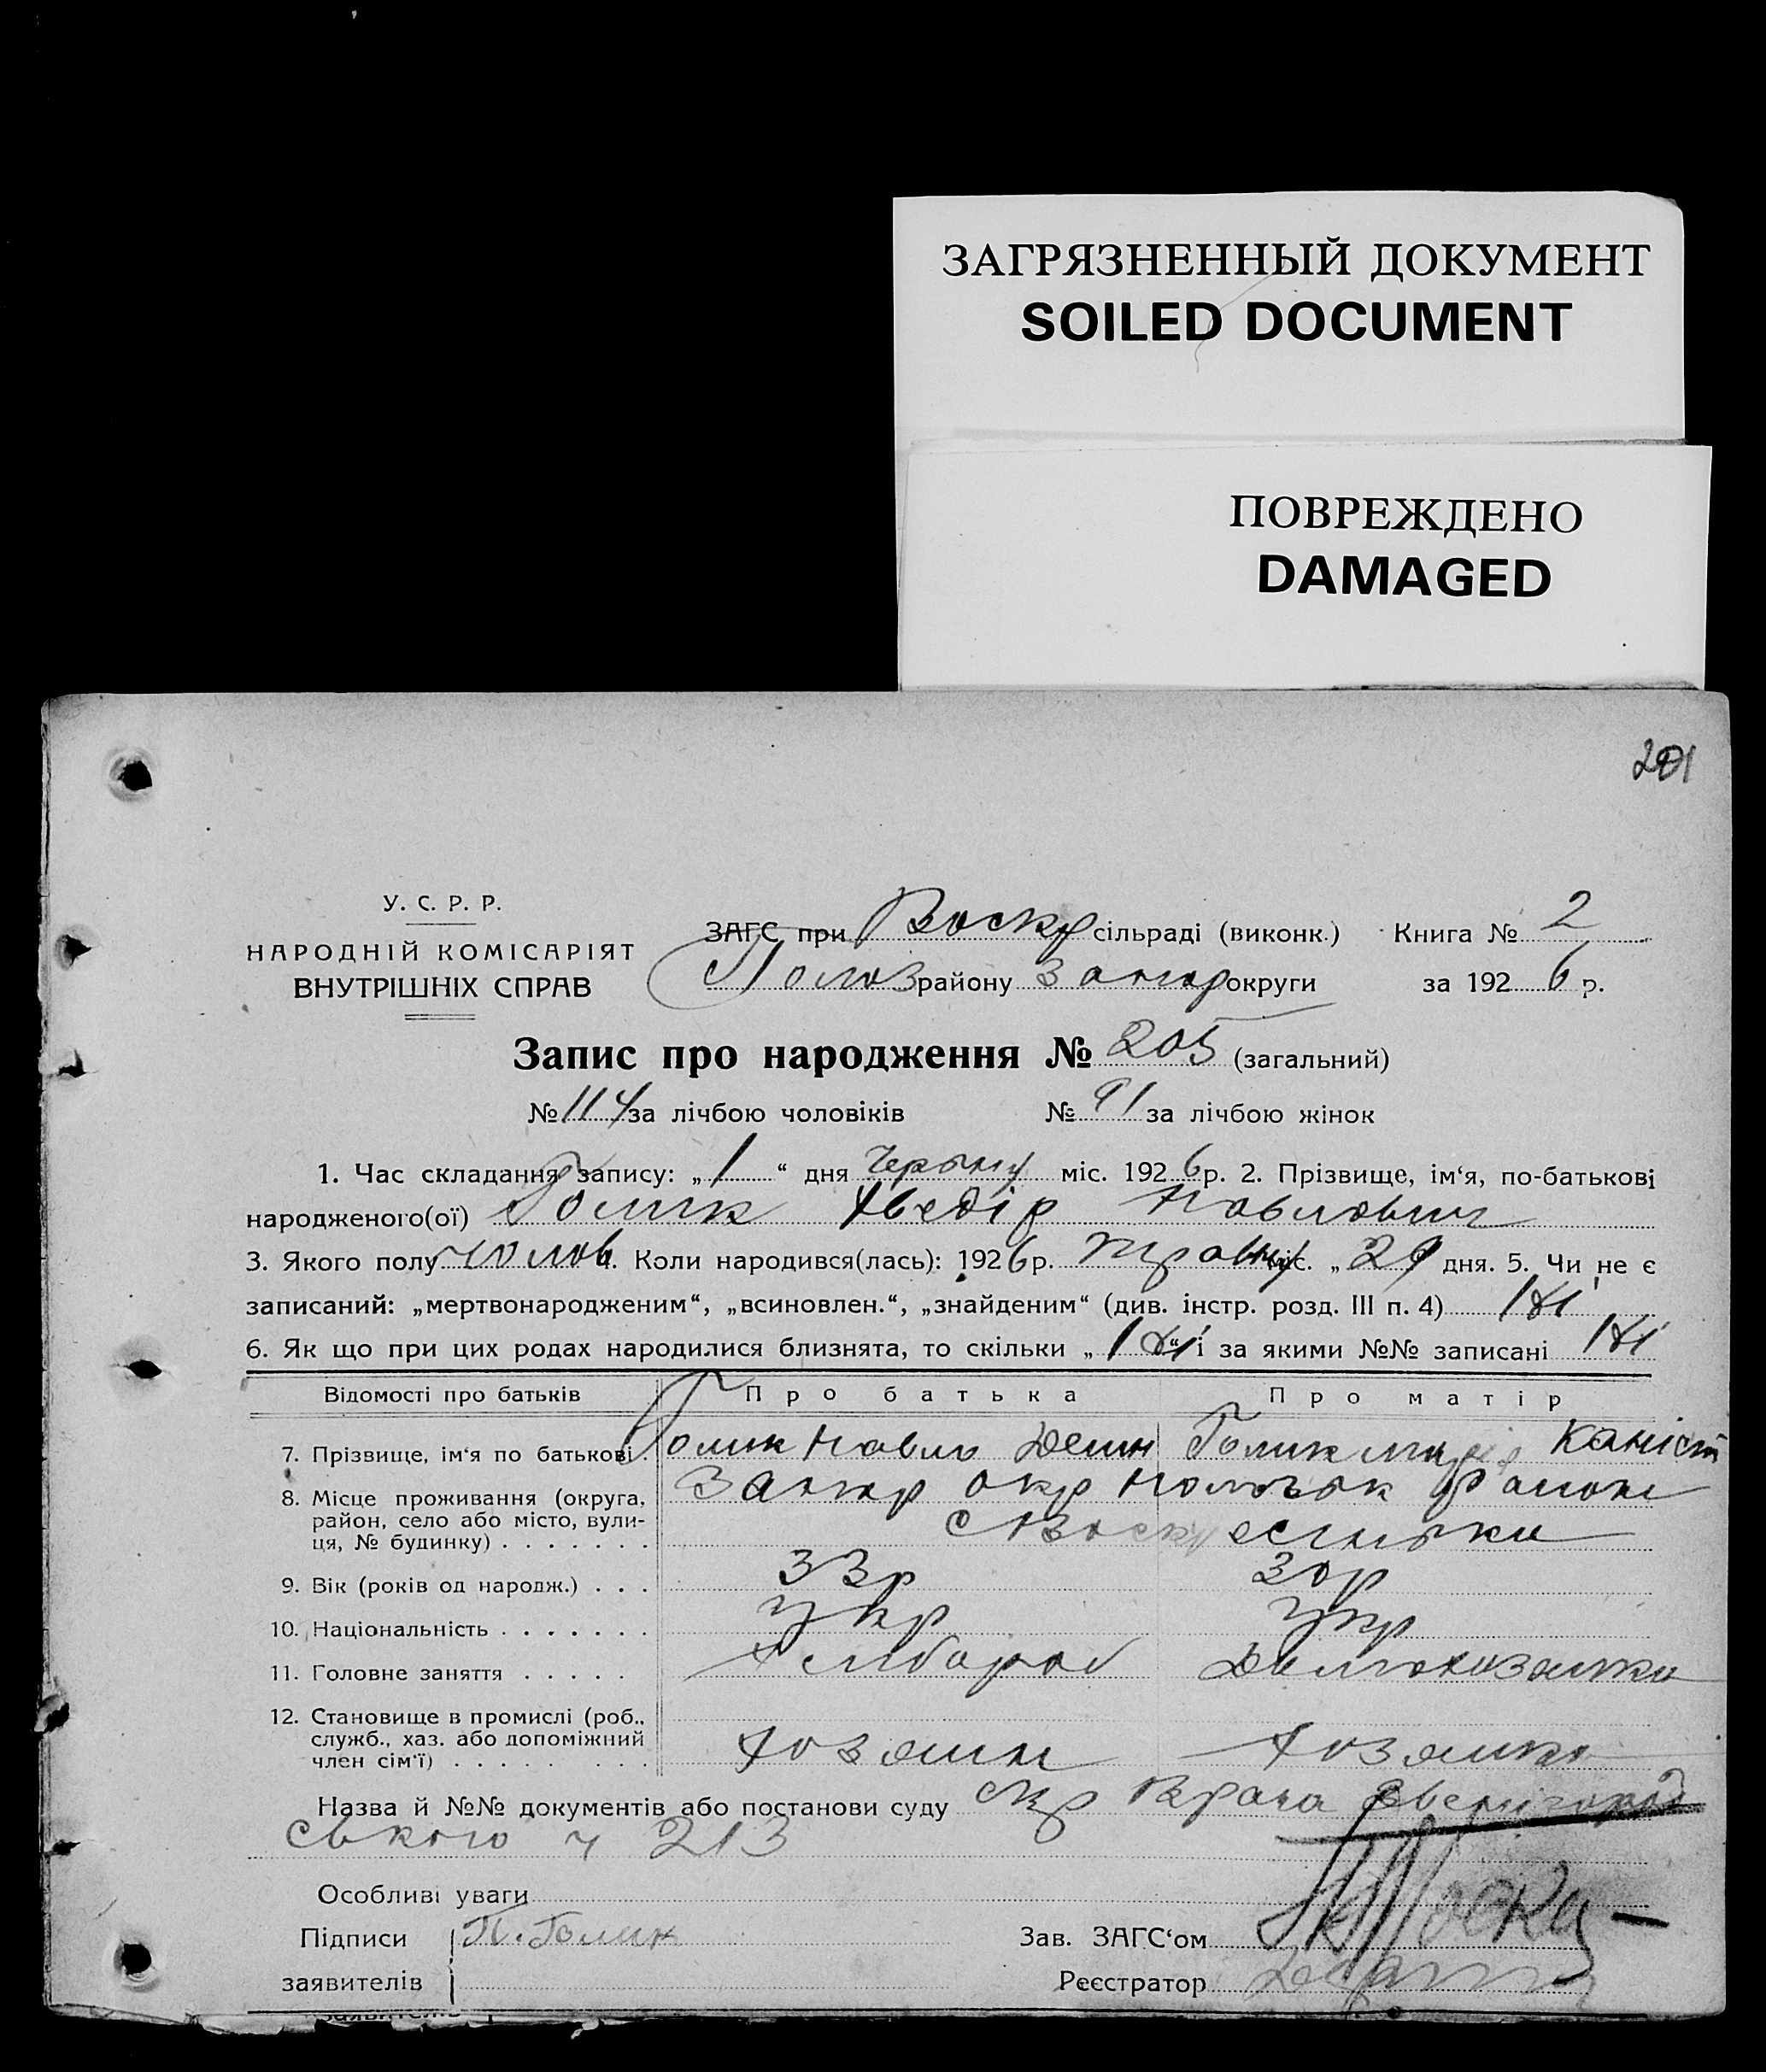 ЗАГРЯЗНЕННЫЙ ДОКУМЕНТ
SOILED DOCUMENT
ПОВРЕЖДЕНО
DAMAGED
У. С. Р. Р.
НАРОДНІЙ КОМІСАРІЯТ
ВНУТРІШНІХ СПРАВ
ЗАГС при Воскр сільраді (виконк.) Книга № 2
Полоз району Запор округи за 1926 р.
Запис про народження № 205 (загальний)
№ 114 за лічбою чоловіків № 91 за лічбою жінок
1. Час складання запису: „1“ дня Червня міс. 1926 р. 2. Прізвище, ім‘я, по-батькові
народженого(ої) Голик Хведір Павлович
3. Якого полу чолов 4. Коли народився(лась): 1926 р. травня міс. „29 дня. 5. Чи не є
записаний: „мертвонародженим“, „всиновлен.“, „знайденим“ (див. інстр. розд. III п. 4)
6. Як що при цих родах народилися близнята, то скільки „ “ і за якими №№ записані
Відомості про батьків Про батька Про матір
7. Прізвище, ім‘я по батькові. Голик Павло Голик Марія
8. Місце проживання (округа, Запор окр район
район, село або місто, вули- с Воскресенька
ця, № будинку)
9. Вік (років од народж.) 33р 30р
10. Національність укр укр
11. Головне заняття Хлібороб Домохозяйка
12. Становище в промислі (роб.,
служб., хаз. або допоміжний
член сім‘ї) Хозяин Хозяйка
Назва й №№ документів або постанови суду
ського ч 213
Особливі уваги
Підписи П. Голик Зав. ЗАГС‘ом
заявителів Реєстратор